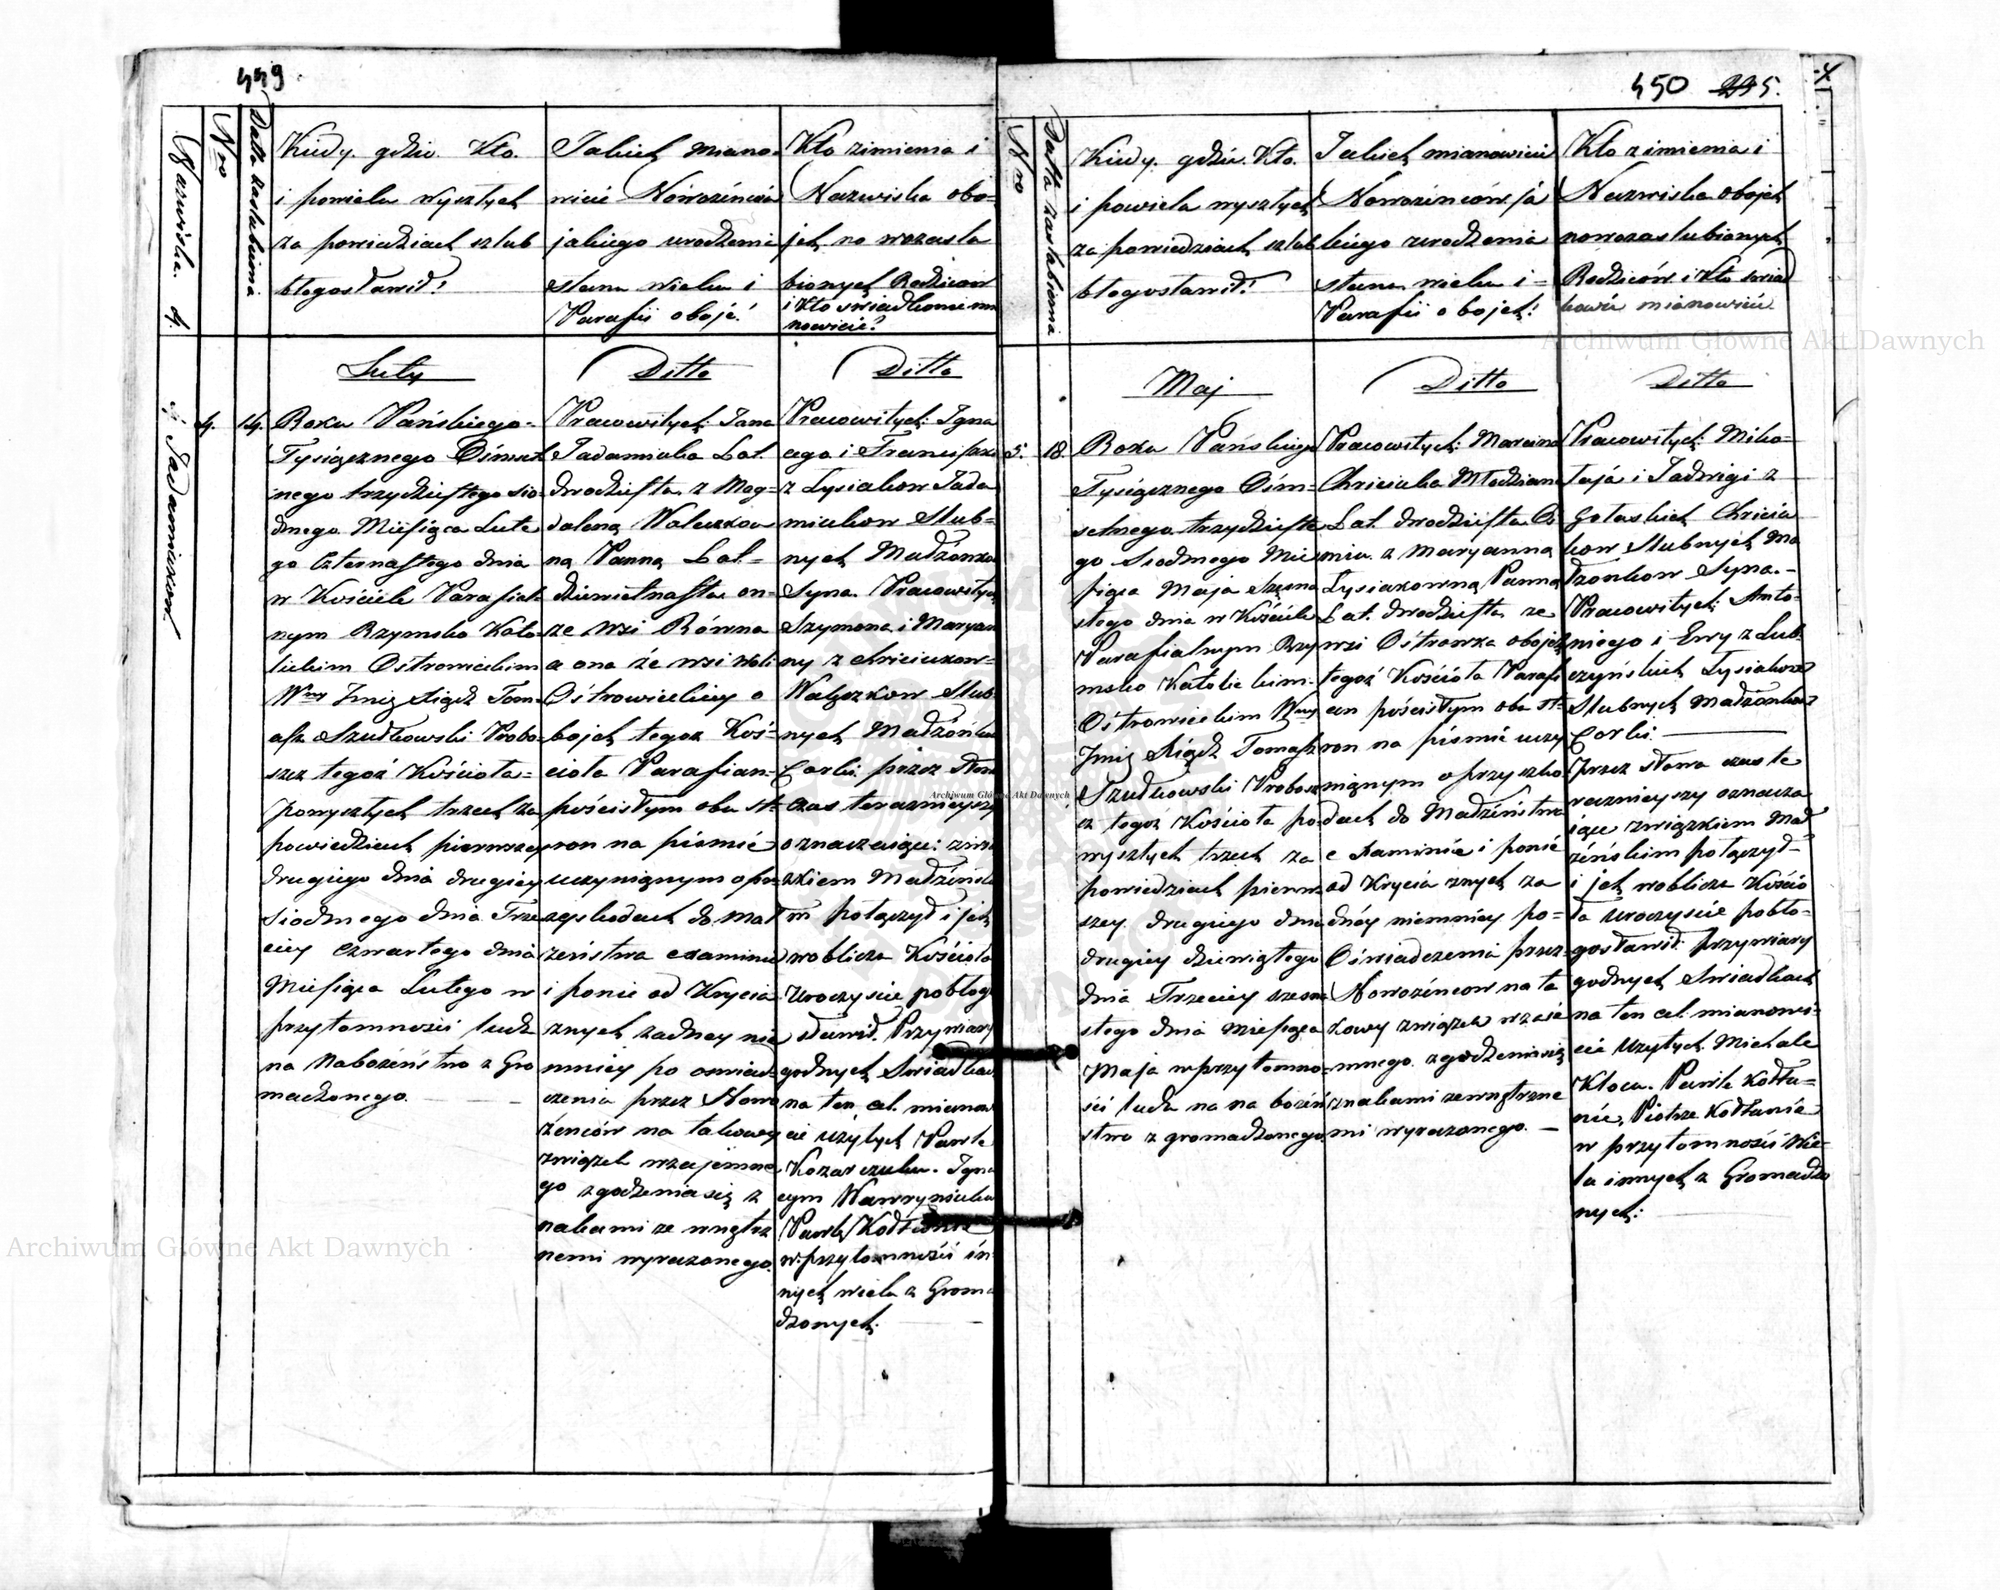 449.
Nazwiska.
Nro
Data zaslubienia
Kiedy. gdzie. Kto.
i powielu wyszłych
za powiedziach szlub
błogosławił?
Jakich miano-
wicie Nowożeńców
jakiego urodzenia
stanu wieku i
Parafii oboje!
Kto z imienia i
Nazwiska obo-
jch no wozaslu
bionych Rodziców
i Kto świadkami mia
nowicie?
Luty
Ditto
Ditto
4.
14.
Roku Pańskiego
Tysiącznego Ośmset
nego trzydziestego sio-
dmego Miesiąca Lute
go Czternastego dnia
w Kościele Parafial
nym Rzymsko Kato
lickim Ostrowieckim
Wny Jmię Xiądz Tom-
asz Szudkowski Probo-
szcz tegoż Kościoła-
powyszłych trzech za
powiedziach pierwszey
drugiego dnia drugiey
Siodmego dnia Trze
ciey Czwartego dnia
Miesiąca Lutego w
przytomności ludu
na Nabożeństwo z Gro
madzonego.
Pracowitych: Jana
Jadamiuka Lat
dwadzieścia z Mag-
daleną Walczkow
ną Panną Lat-
dziewiętnaście on-
ze wsi Równa
a ona ze wsi Woli
Ostrowieckiey o
bojch tegoż Koś-
cioła Parafian-
pościsłym obu st-
ron na piśmie
uczynionym opo
zeństwa examinie
i ponie od Krycia
znych żadney nie
mniey po oświad-
czenia przez Nowo
żeńców na takowy
związek wzajemne
go zgodzenia się z
nakami ze wnętrz
nemi wyrazonego.
Pracowitych: Igna
cego i Franciszki
z Lysiakow Jada
miukow Slub-
nych Madżonkow
Syna. Pracowitych
Szymona i Maryan
ny z Chriciukow-
Walczkow Slub
nych Madżonkow
Corki przez słowa
czas teraznieyszy
oznaczaiące: zwią
zkiem Madżeńsk
m połączył i jch
woblicza Kościoła
Uroczyscie pobłogo
sławił. Przy wiary
godnych Swiadkach
na ten cel mianowi
cie użytych Pawle
Kozarczuku. Igna
cym Wawryniuku
Pawle Kodłanie
w przytomności in
nych wielu z Groma
dzonych.
450
5.
Nro
Data zaslubienia
Kiedy. gdzie. Kto.
i powielu wyszłych
za powiedziach szlub
błogosławił!
Jakich mianowicie
Nowożeńców ja
kiego urodzenia
stanu wieku i-
Parafii obojch!
Kto z imienia i
Nazwiska obojch
nowozaslubionych
Rodziców i Kto świad
kowie mianowicie.
Maj
Ditto
Ditto
5.
18.
Roku Pańskiego
Tysiącznego Ośm-
setnego trzydzieste
go Siodmego Mie
siąca Maja Szesna
stego dnia w Kościele
Parafialnym Rzy
msko Katolickim-
Ostrowieckim Wny
Jmię Xiądz Tomasz
Szudkowski Probosz
cz tegoż Kościoła po
wyszłych trzech za
powiedziach pierw
szey drugiego dnia
drugiey dziewiątego
dnia Trzeciey szesna
stego dnia Miesiąca
Maja w przytomno-
ści ludu na na bożeń
stwo z gromadzonego
Pracowitych: Marcina
Chriciuka Młodziana
Lat. dwadzieścia Oś
miu. z Maryanną
Lysiakowną Panną
Lat. dwadzieścia ze
wsi Ostrowka obojch
tegoż Kościoła Parafi
an pościsłym obu st-
ron na piśmie uczy
nionym o przyszko
dach do Madżeństwa
e xaminie i ponie
od Krycia znych ża
dnéy niemniey po-
Oświadczenia przez
Nowożeńcow na ta
kowy związek wzaie
mnego zgodzenia się
znakami zewnętrzne
mi wyrazonego. —
Pracowitych: Miko-
łaja i Jadwigi z
Golaskich Chriciu
kow Slubnych Ma
dżonkow Syna.-
Pracowitych: Anto-
niego i Ewy z Lub
czyńskich Lysiakow
Slubnych Madżonkow
Corki.
przez słowa czas te
raznieyszy oznacza
iące związkiem Mał
żeńskim połączył-
i jch woblicza Kościo
ła uroczyscie pobło-
gosławił: przy wiary
godnych Swiadkach
na ten cel. mianowi-
cie Użytych. Michale
Klocu. Pawle Kodła-
nie, Piotrze Kodłanie
w przytomności Wie-
lu innych z Gromadzo
nych:
4. Jadamiukow
Archiwum Główne Akt Dawnych
Archiwum Główne Akt Dawnych
Archiwum Główne Akt Dawnych